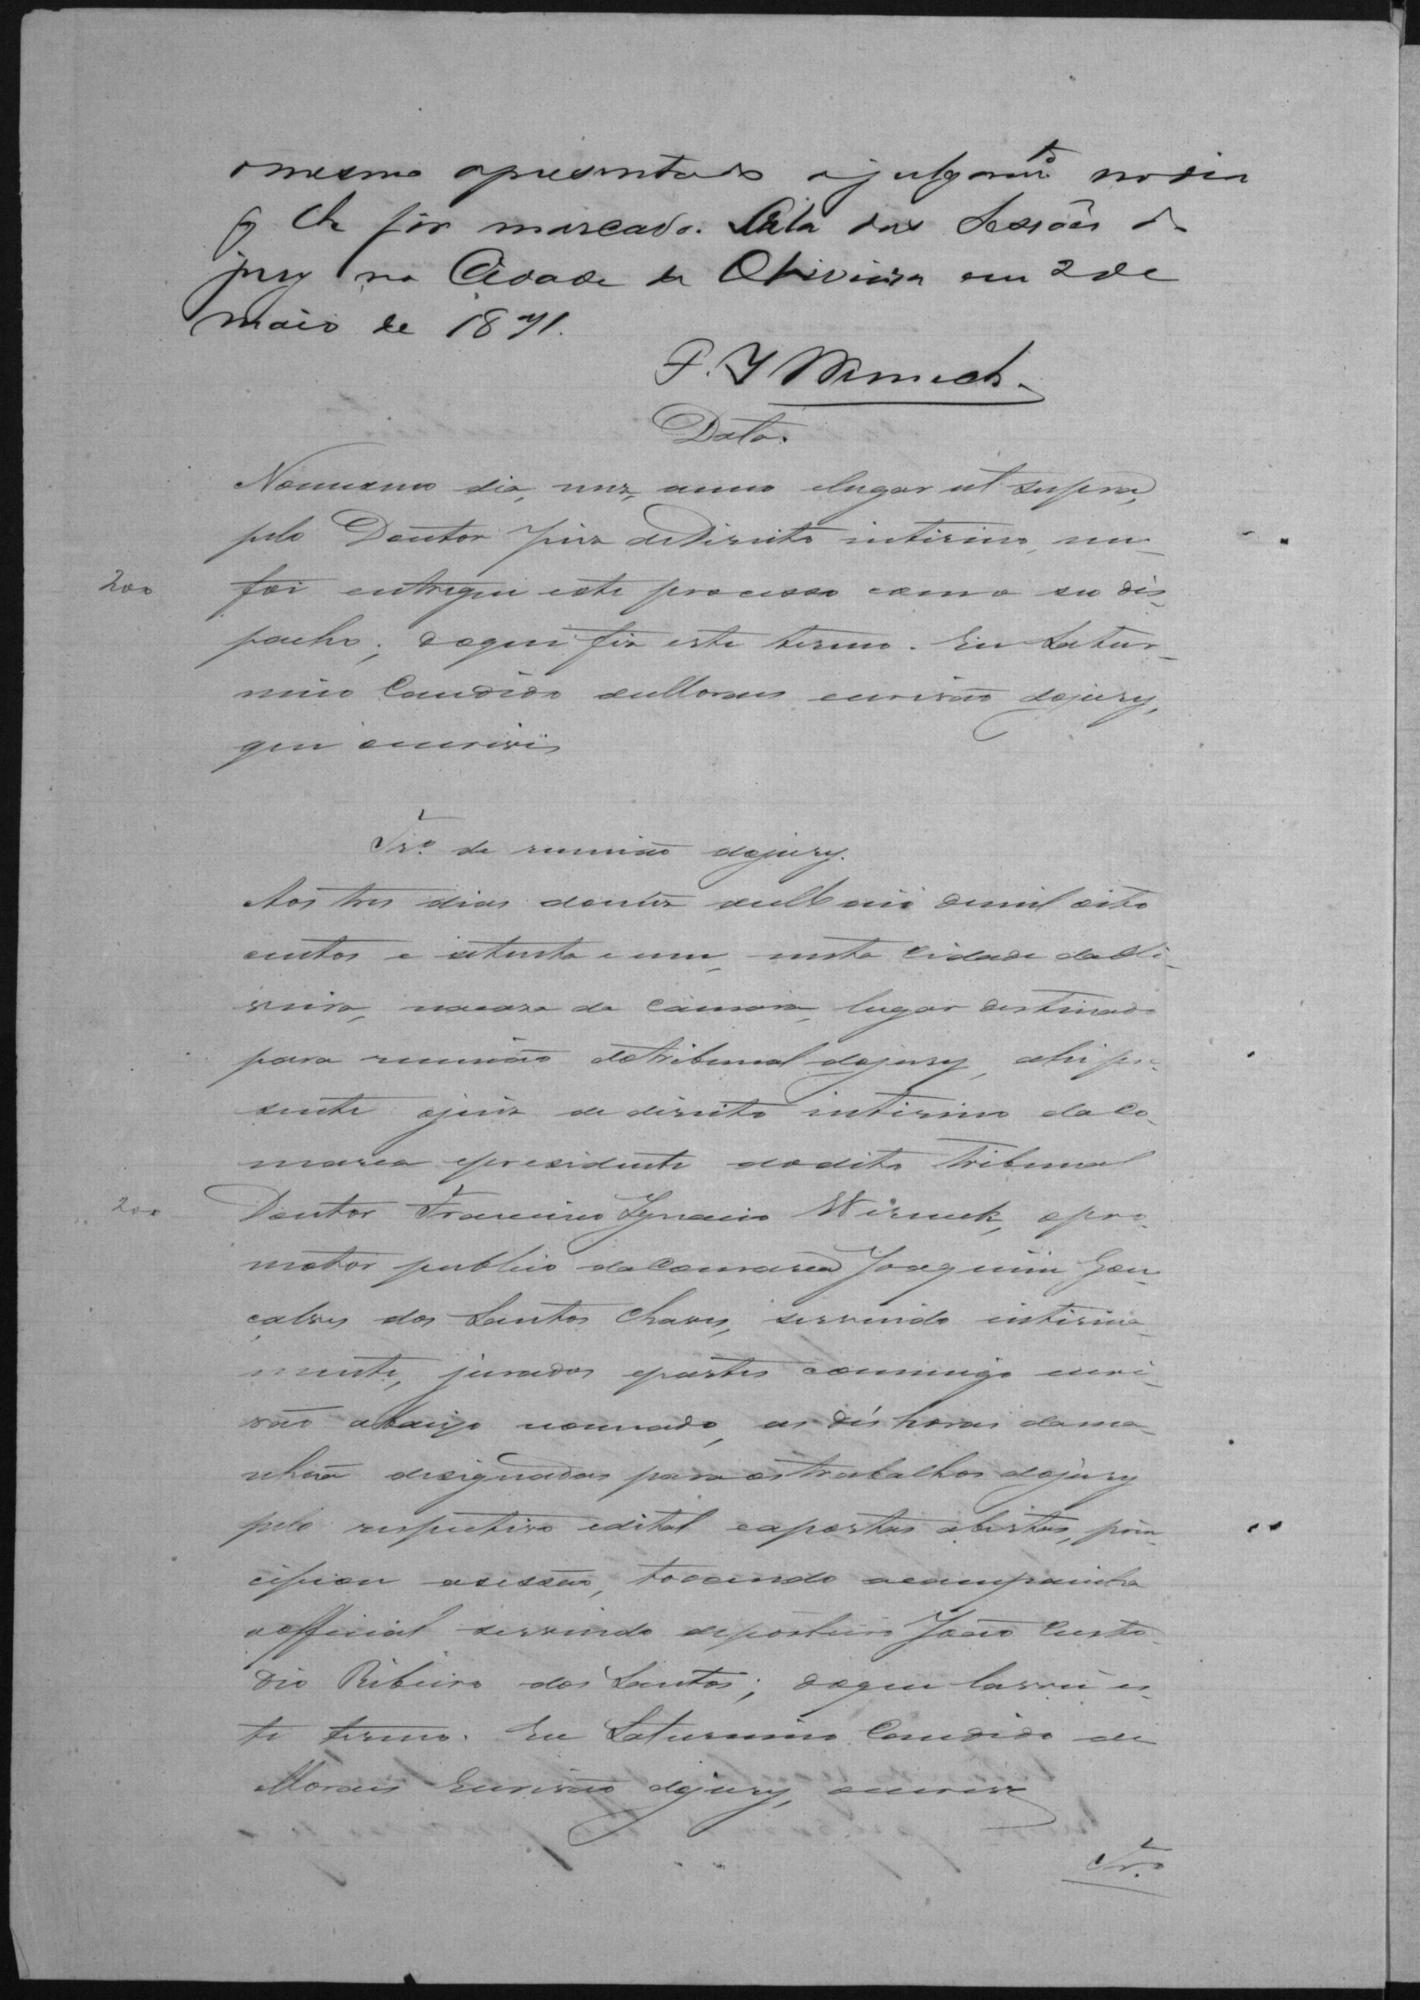 o mesmo apresentado a julgamto no dia
q lhe for marcado. Sala das Sessões do
jury na Cidade de Oliveira em 2 de
maio de 1871.
F. I Wernech.
Data.
No mesmo dia, mez, anno e lugar ut supra,
pelo Doutor Juiz de Direito interino, me
200 foi entregue este processo com o seu dis-
pacho; do que fiz este termo. Eu Satur-
nino Candido de Moraes escrivão do jury,
que escrevi
Tro. de reunião do jury.
Aos tres dias do mez de Maio de mil oito
centos e setenta e um, nesta Cidade da Oli-
veira, na caza da Camara, lugar destinado
para reunião do tribunal do jury, ahi pre-
sente o juiz de direito interino da Co-
marca e presidente do dito tribunal
200 Doutor Francisco Ignacio Werneck, o pro-
motor publico da Comarca Joaquim Gon-
çalves dos Santos Chaves, servindo interina-
mente, jurados e partes commigo escri-
vão abaixo nomeado, as dés horas da ma-
nhan designadas para os trabalhos do jury
pelo respectivo edital e a portas abertas, prin-
cipiou a sessão, tocando a campainha
o official servindo de porteiro João Custo-
dio Ribeiro dos Santos; do que lavrei es-
te termo. Eu Saturnino Candido de
Moraes Escrivão do jury, o escrevi
Tro.